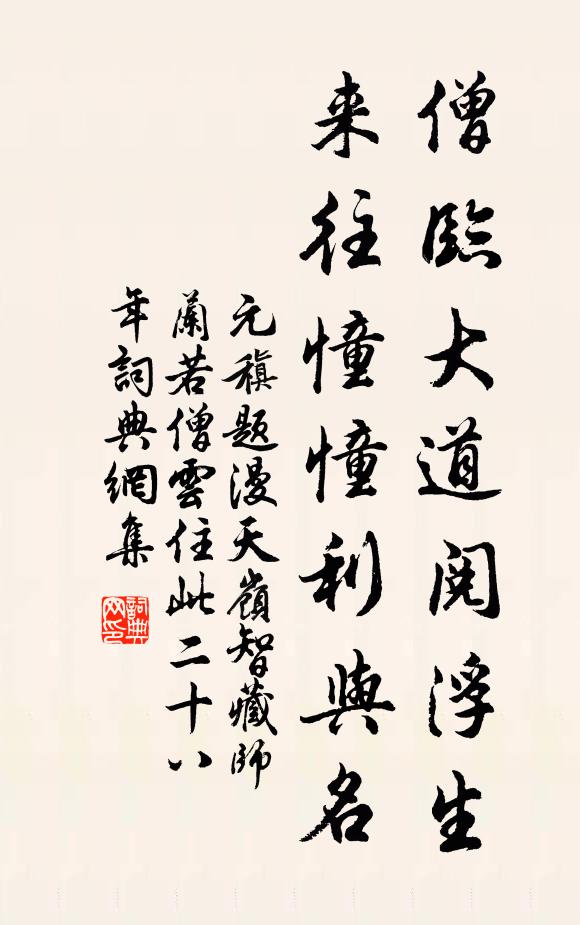 僧臨大道閱浮生
来往憧憧利與名
元稹題漫天嶺智藏師
蘭若僧雲住此二十八
年詞典網集
詞典
网印